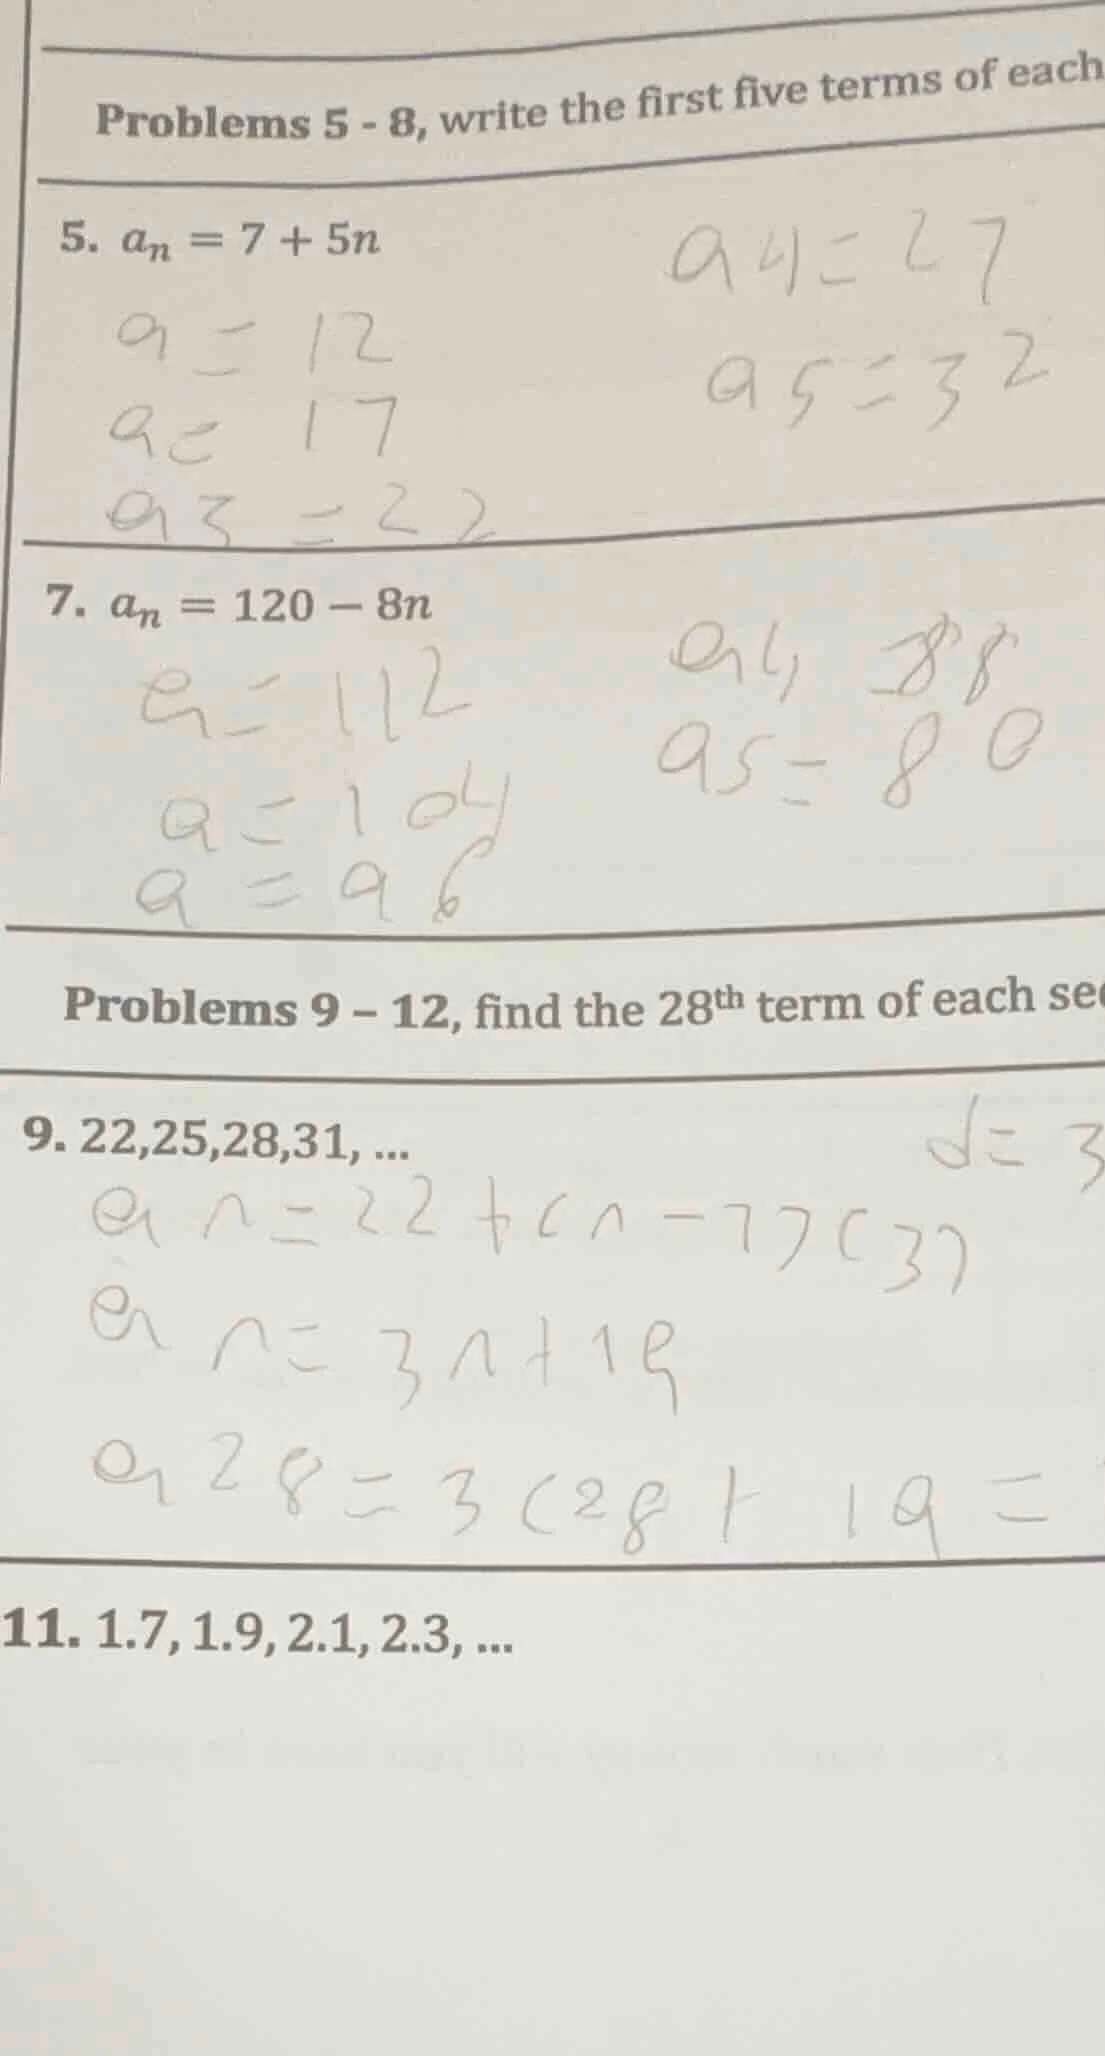 Problems 5 - 8, write the first five terms of each
5. aₙ = 7 + 5n
a4 = 27
a = 12
a5 = 32
a = 17
a3 = 22
7. aₙ = 120 − 8n
a4 = 88
a = 112
a5 = 80
a = 104
a = 96
Problems 9 – 12, find the 28th term of each se
9. 22,25,28,31, ...
d = 3
an = 22 + (n - 1)(3)
an = 3n + 19
a28 = 3(28 + 19 =
11. 1.7, 1.9, 2.1, 2.3, ...